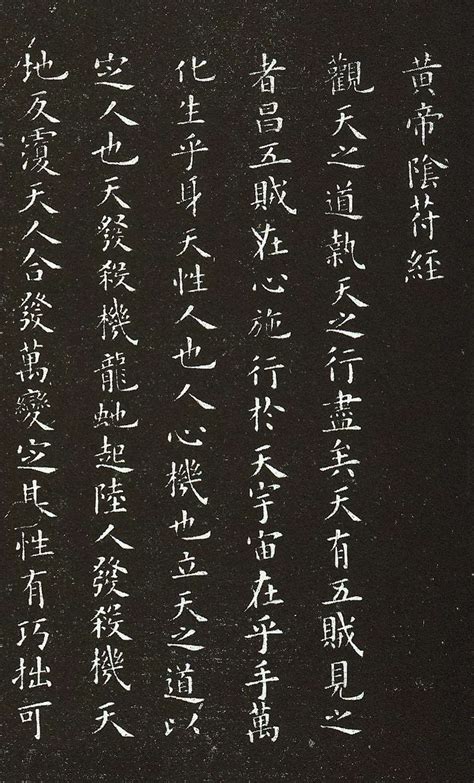 黃帝陰苻經
觀天之道執天之行盡矣天有五賊見之
者昌五賊在心施行於天宇宙在乎手萬
化生乎身天性人也人心機也立天之道以
定人也天發殺機龍虵起陸人發殺機天
地反覆天人合發萬變定其性有巧拙可